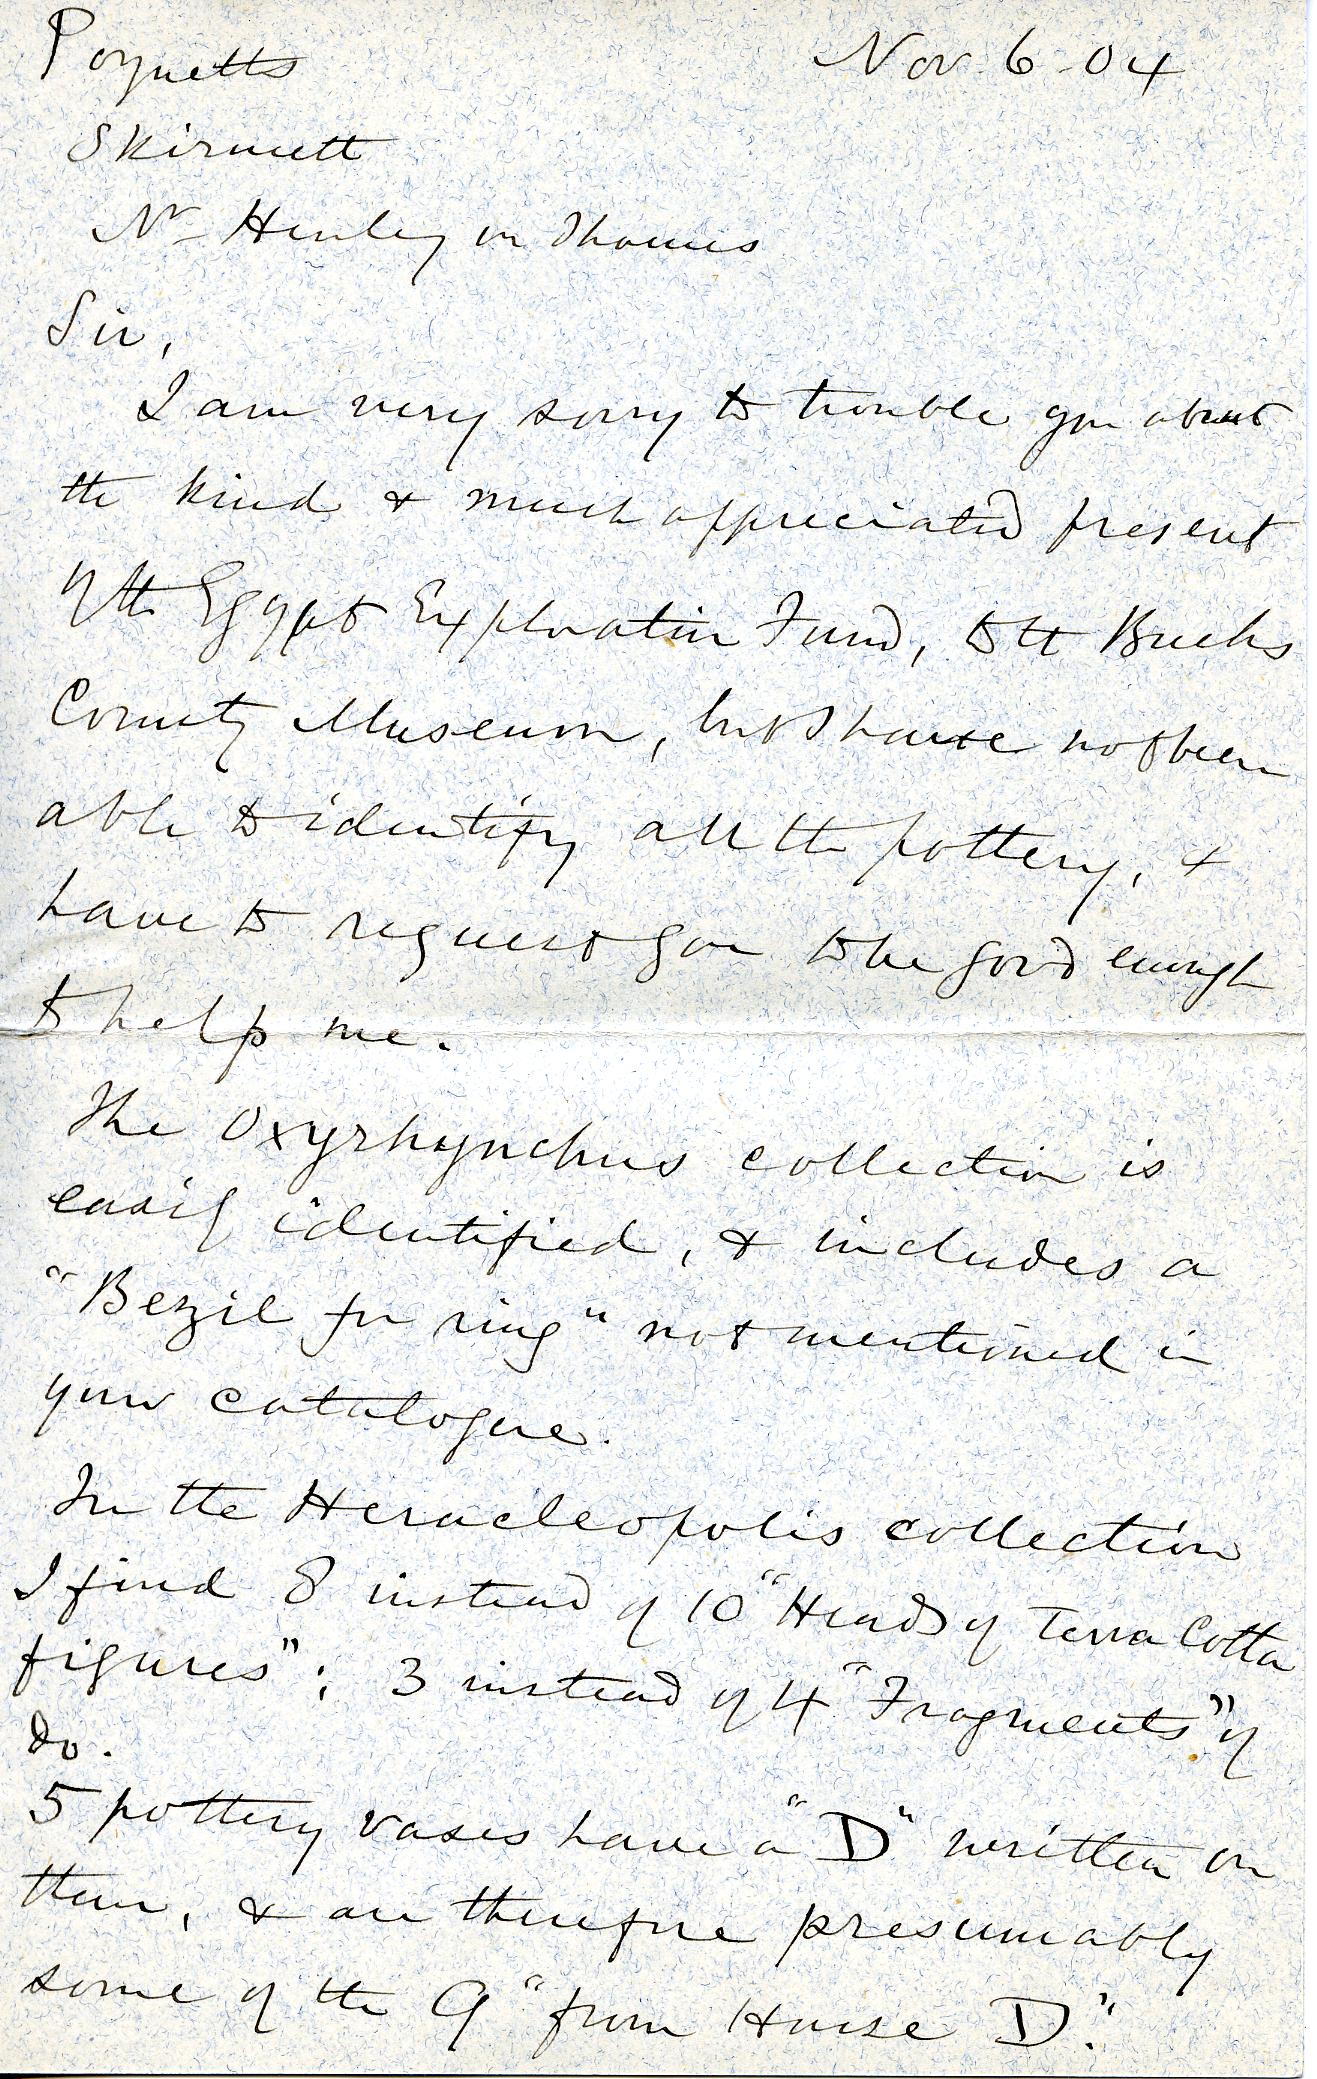 Poynetts Nov 6-04
Skirmett
Nr Henley on Thames
Sir,
I am very sorry to trouble you about
the kind & much appreciated present
of the Egypt Exploration Fund, to the Bucks
County Museum, but I have not been
able to identify all the pottery, &
have to request you to be good enough
to help me.
The Oxyrhynchus collection is
easily identified, & includes a
"Bezil for ring" not mentioned in
your catalogue.
In the Heracleopolis collection
I find 8 instead of 10 "Heads of Terra Cotta
figures"; 3 instead of 4 "Fragments" of
do.
5 pottery vases have a "D" written on
them, & are therefore presumably
some of the 9 "from House D."